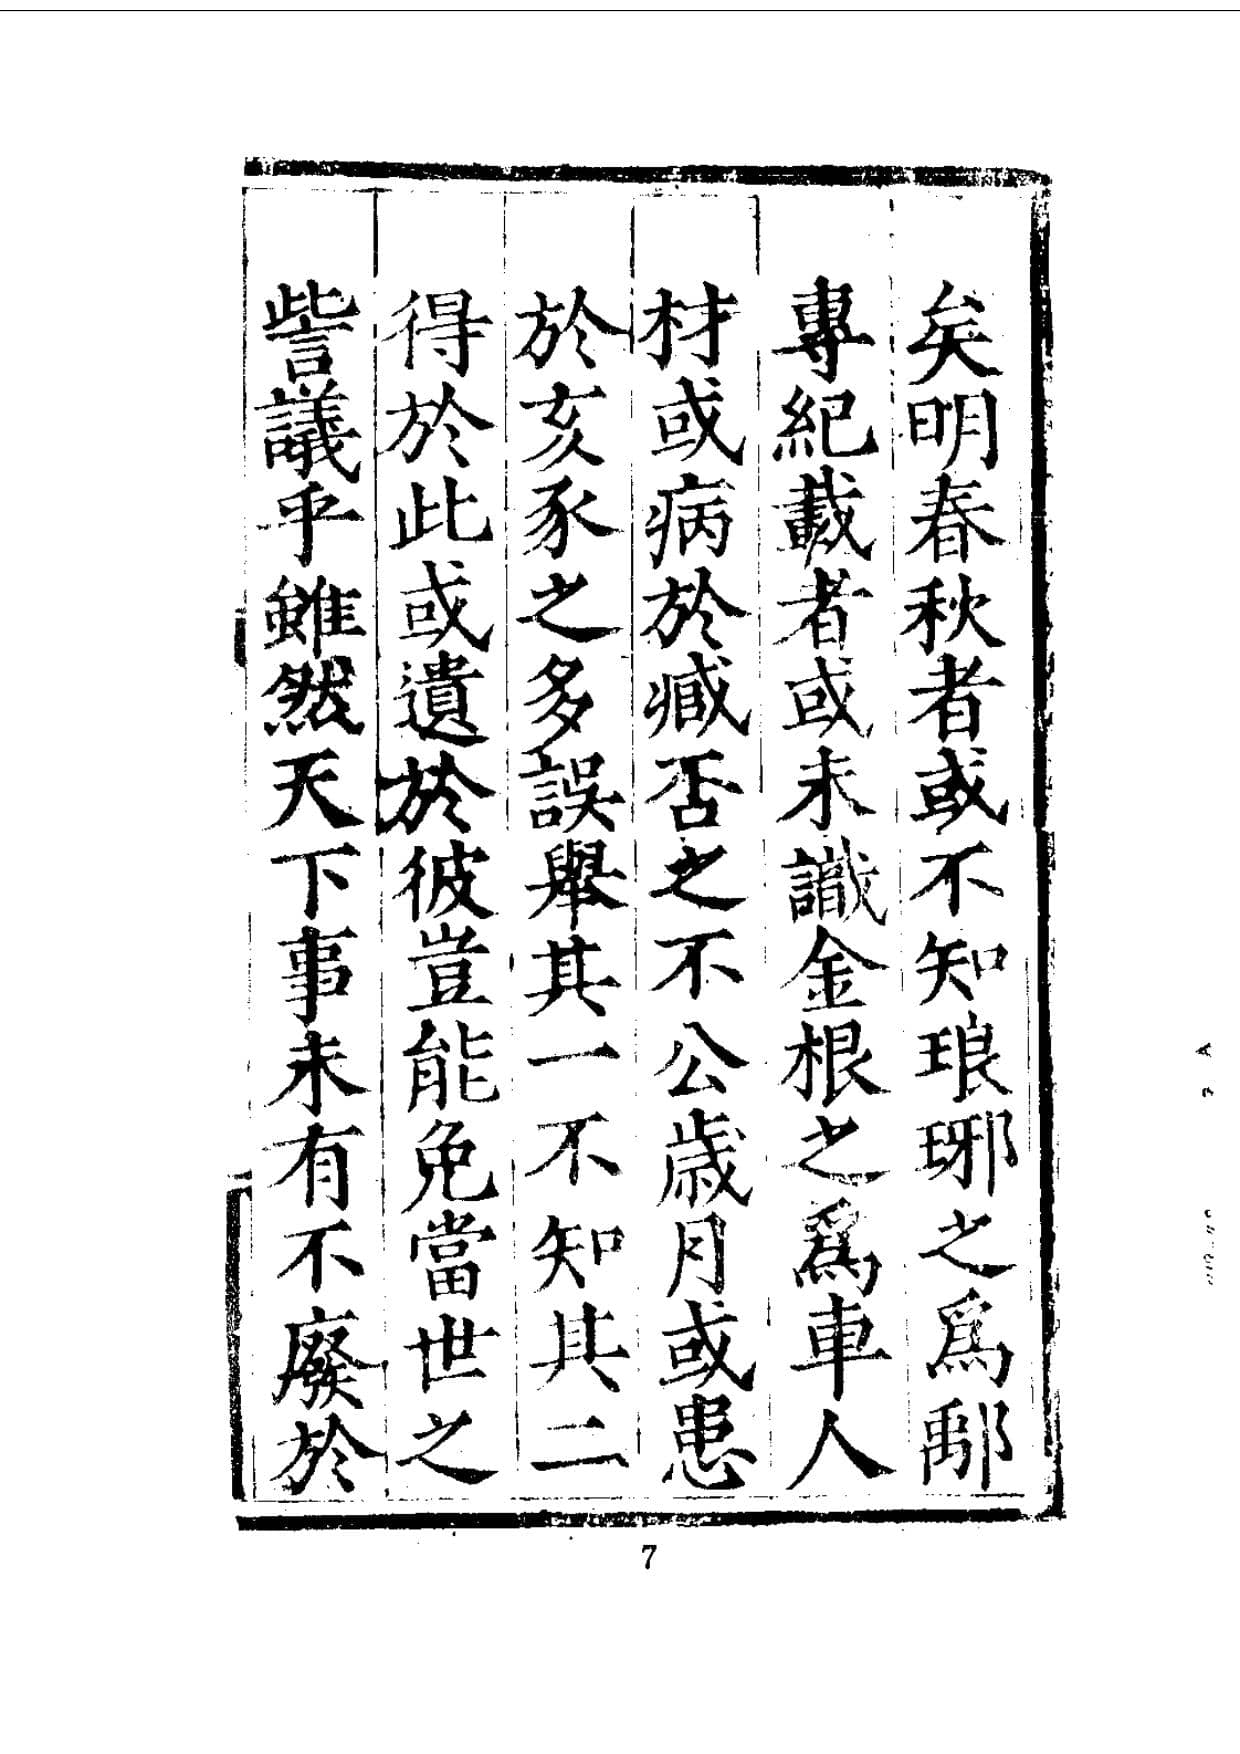 矣明春秋者或不知琅琊之爲鄅
專紀載者或未識金根之爲車人
材或病於臧否之不公歳月或患
於亥豕之多誤舉其一不知其二
得於此或遺於彼豈能免當世之
訾議乎雖然天下事未有不廢於
7